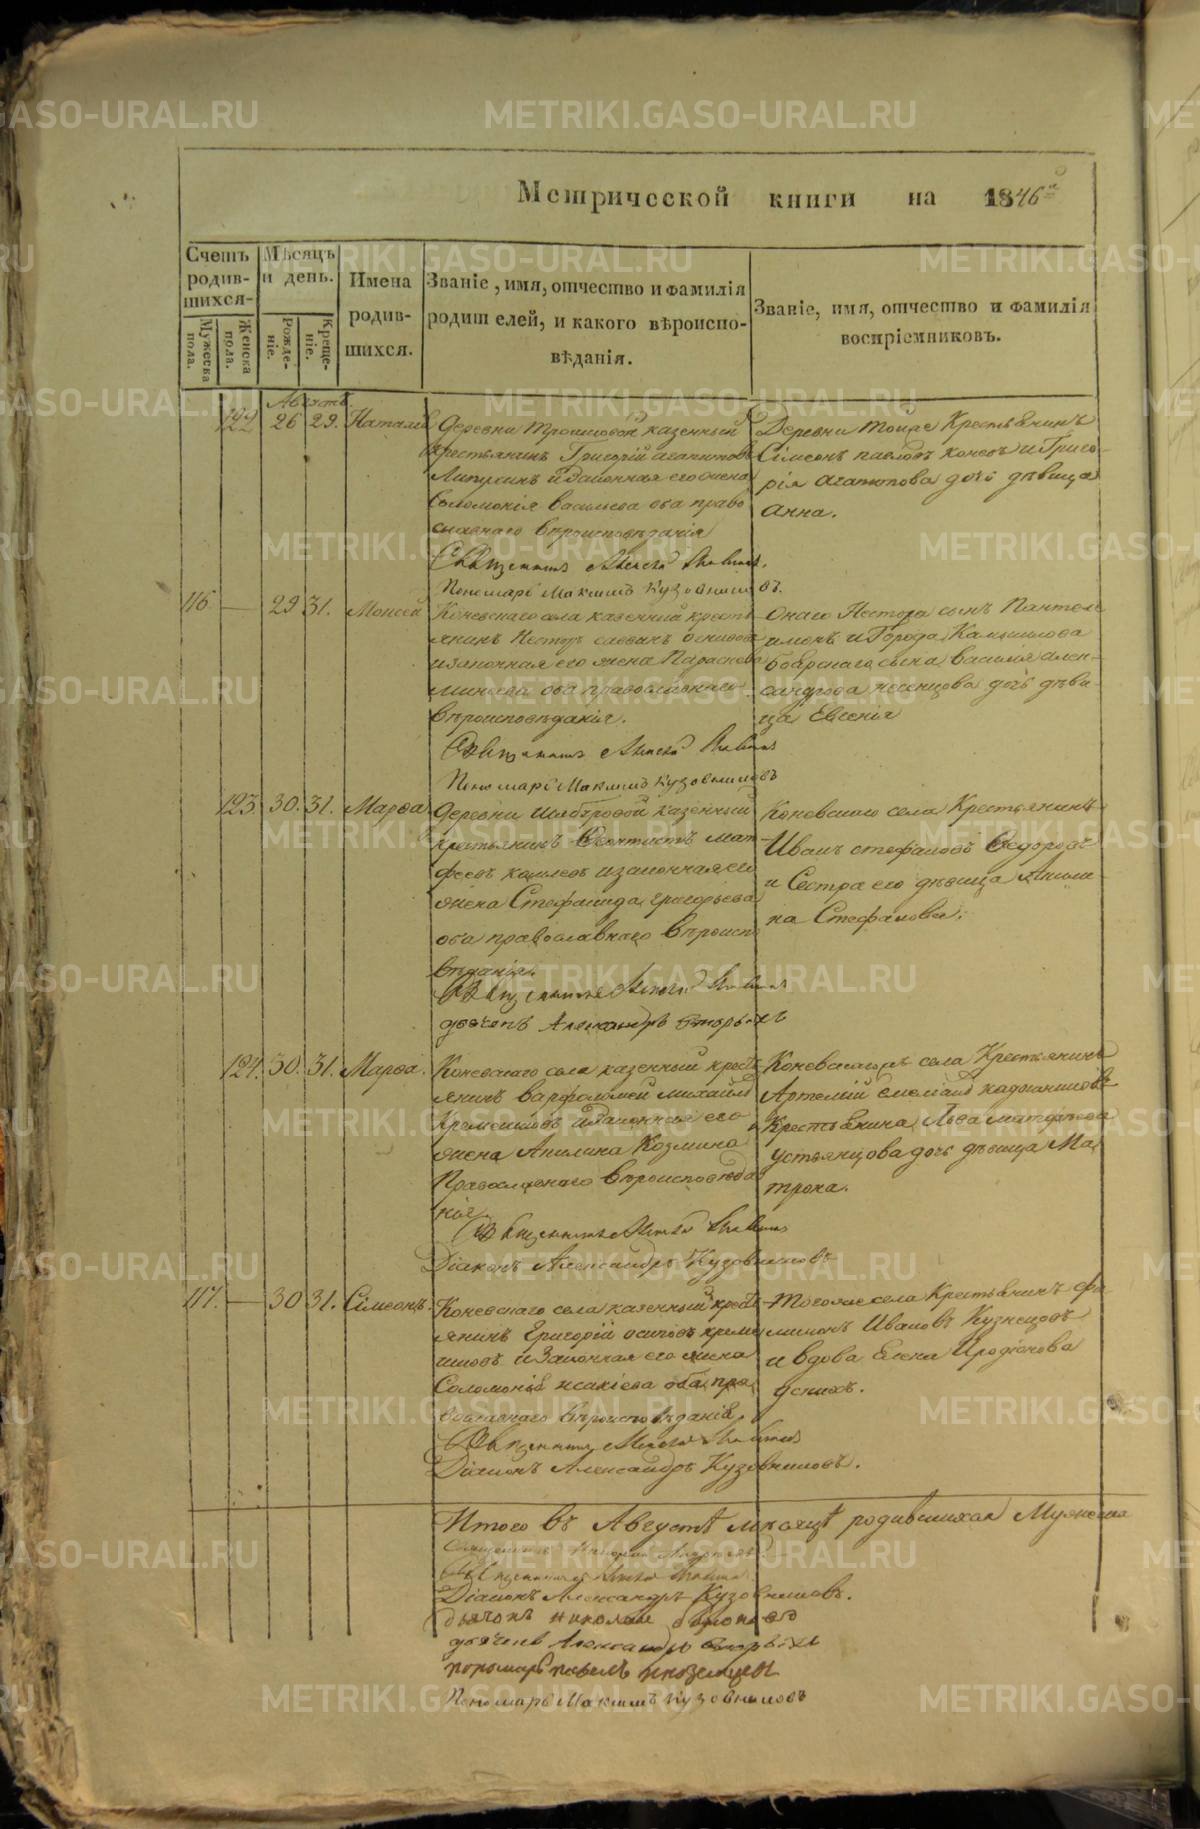 Метрической книги на 1846й
Счетъ родив-шихся
Мѣсяцъ и день.
Имена родив-шихся.
Званіе, имя, отчество и фамилія родителей, и какого вѣроиспо-вѣданія.
Званіе, имя, отчество и фамилія воспріемниковъ.
Мужеска пола.
Женска пола.
Рожде-ніе.
Креще-ніе.
Августъ.
122 26 29. Наталія
Деревни казенный
крестьянинъ Григорій Агапитовъ
и законная его жена
Соломонія Васильева оба право
славнаго вѣроисповѣданія
Священникъ
Пономарь Максимъ Кузовниковъ.
Деревни тойже Крестьянинъ
Сімеонъ Павловъ и Григо-
рія Агапитова дочь дѣвица
Анна.
116 — 29 31. Моисей
Коневскаго села казенный кресть
янинъ Несторъ
и законная его жена Параскева
оба православнаго
вѣроисповѣданія.
Священникъ
Пономарь Максимъ Кузовниковъ
Онаго Нестора сынъ Пантеле
имонъ и Города Камышлова
Боярскаго сына Василія Алек-
сандрова дочь дѣви-
ца Евгенія
123. 30. 31. Марѳа.
Деревни казенный
крестьянинъ Ѳеоктистъ Мат
феевъ и законная его
жена Стефанида Григорьева
оба православнаго вѣроиспо
вѣданія.
Священникъ
дьячекъ Александръ
Коневскаго села Крестьянинъ
Иванъ Стефановъ Ѳедоровъ
и Сестра его дѣвица Акили-
на Стефанова.
124. 30. 31. Марѳа.
Коневскаго села казенный кресть
янинъ Варфоломей Михайловъ
и законная его
жена Акилина Козмина
Православнаго вѣроисповѣда
нія.
Священникъ
Діаконъ Александръ Кузовниковъ
Коневскагожъ села Крестьянинъ
Артемій
Крестьянина Льва Матфѣева
Устьянцова дочь дѣвица Ма
трона.
117. — 30 31. Сімеонъ.
Коневскаго села казенный кресть
янинъ Григорій Осиповъ
и Законная его жена
Соломонія Исакіева оба пра
вославнаго вѣроисповѣданія
Священникъ
Діаконъ Александръ Кузовниковъ.
Тогоже села Крестьянинъ Фи
лимонъ Ивановъ Кузнецовъ
и вдова Елена Иродіонова
Итого въ Августѣ мѣсяцѣ родившихся Мужеска
Священникъ
Священникъ
Діаконъ Александръ Кузовниковъ.
дьячокъ Николай
дьячекъ Александръ
пономарь Павелъ Иноземцовъ
Пономарь Максимъ Кузовниковъ
METRIKI.GASO-URAL.RU